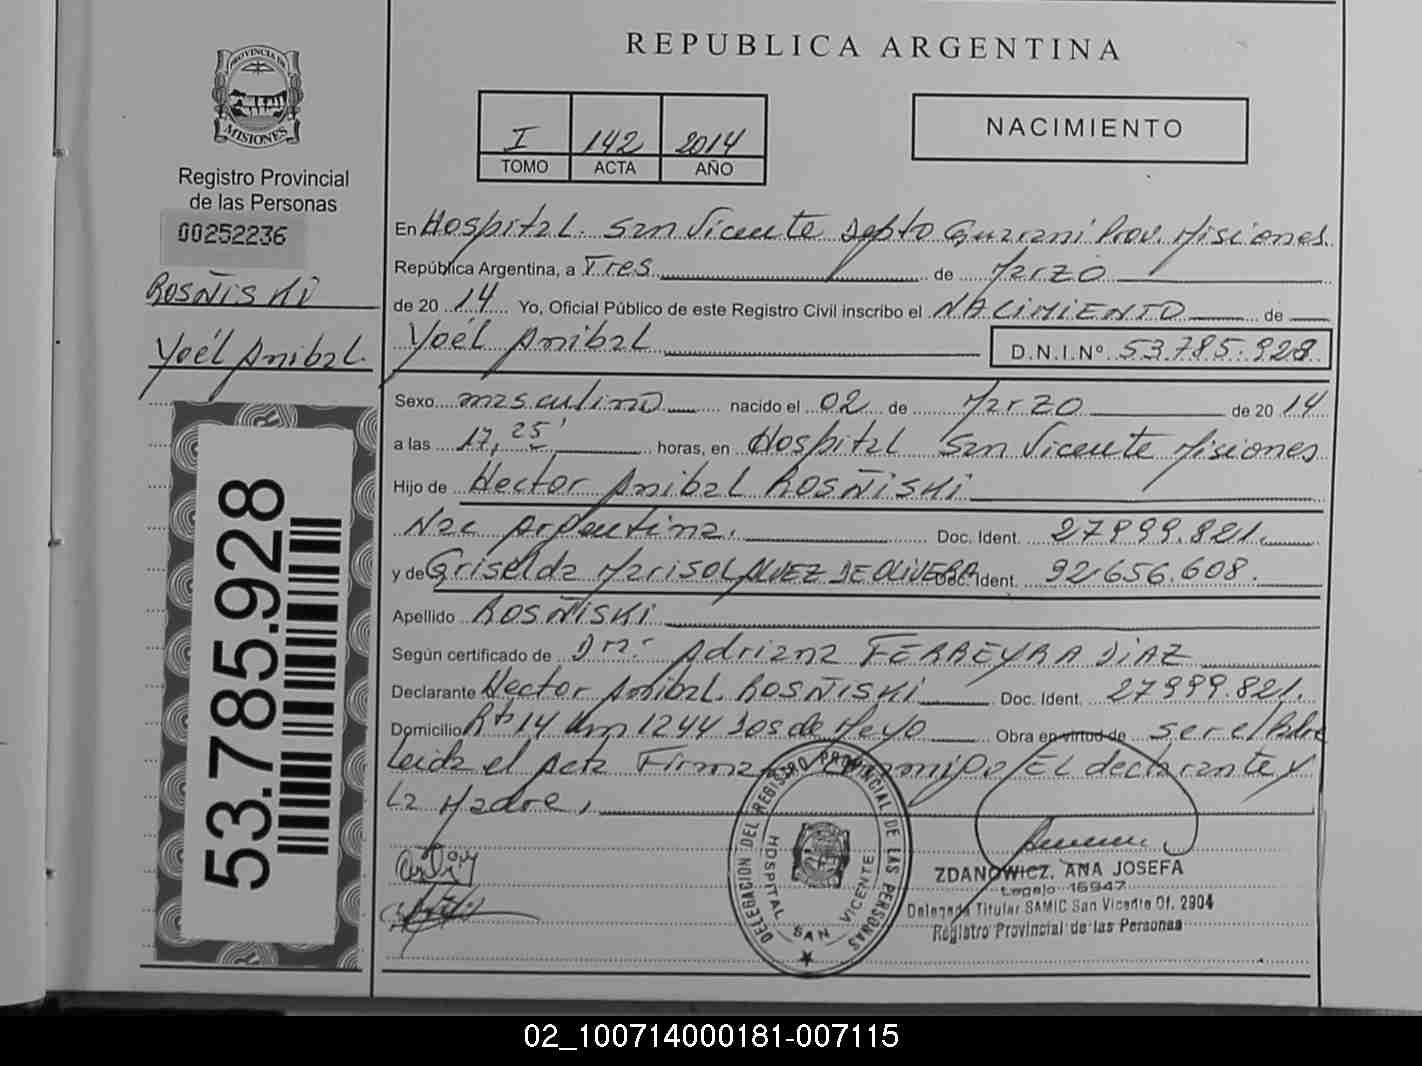 REPUBLICA ARGENTINA
PROVINCIA DE
MISIONES
Registro Provincial
de las Personas
00252236
ROSÑISKI
Yoél Anibal.
53.785.928
I 142 2014
TOMO ACTA AÑO
NACIMIENTO
En Hospital. San Vicente Depto Guarani Prov. Misiones.
República Argentina, a Tres de Marzo
de 20 14 Yo, Oficial Público de este Registro Civil inscribo el NACIMIENTO de
Yoél Anibal D.N.I.Nº 53.785.928
Sexo masculino nacido el 02 de Marzo de 20 14
a las 17,25' horas, en Hospital San Vicente Misiones
Hijo de Hector Anibal ROSÑISKI
Nac Argentina. Doc. Ident. 27999.821.
y de Griselda Marisol ALVEZ DE OLIVERA Doc. Ident. 92.656.608.
Apellido ROSÑISKI
Según certificado de Dra. Adriana FERREYRA DIAZ
Declarante Hector Anibal. ROSÑISKI Doc. Ident. 27999.821.
Domicilio Rta 14 Km 1244 Dos de Mayo Obra en virtud de ser el Padre
Leida el Acta Firman Conmigo EL declarante y
La Madre,
DELEGACION DEL REGISTRO PROVINCIAL DE LAS PERSONAS
HOSPITAL SAN VICENTE
ZDANOWICZ, ANA JOSEFA
Legajo 16947
Delegada Titular SAMIC San Vicente Of. 2904
Registro Provincial de las Personas
02_100714000181-007115